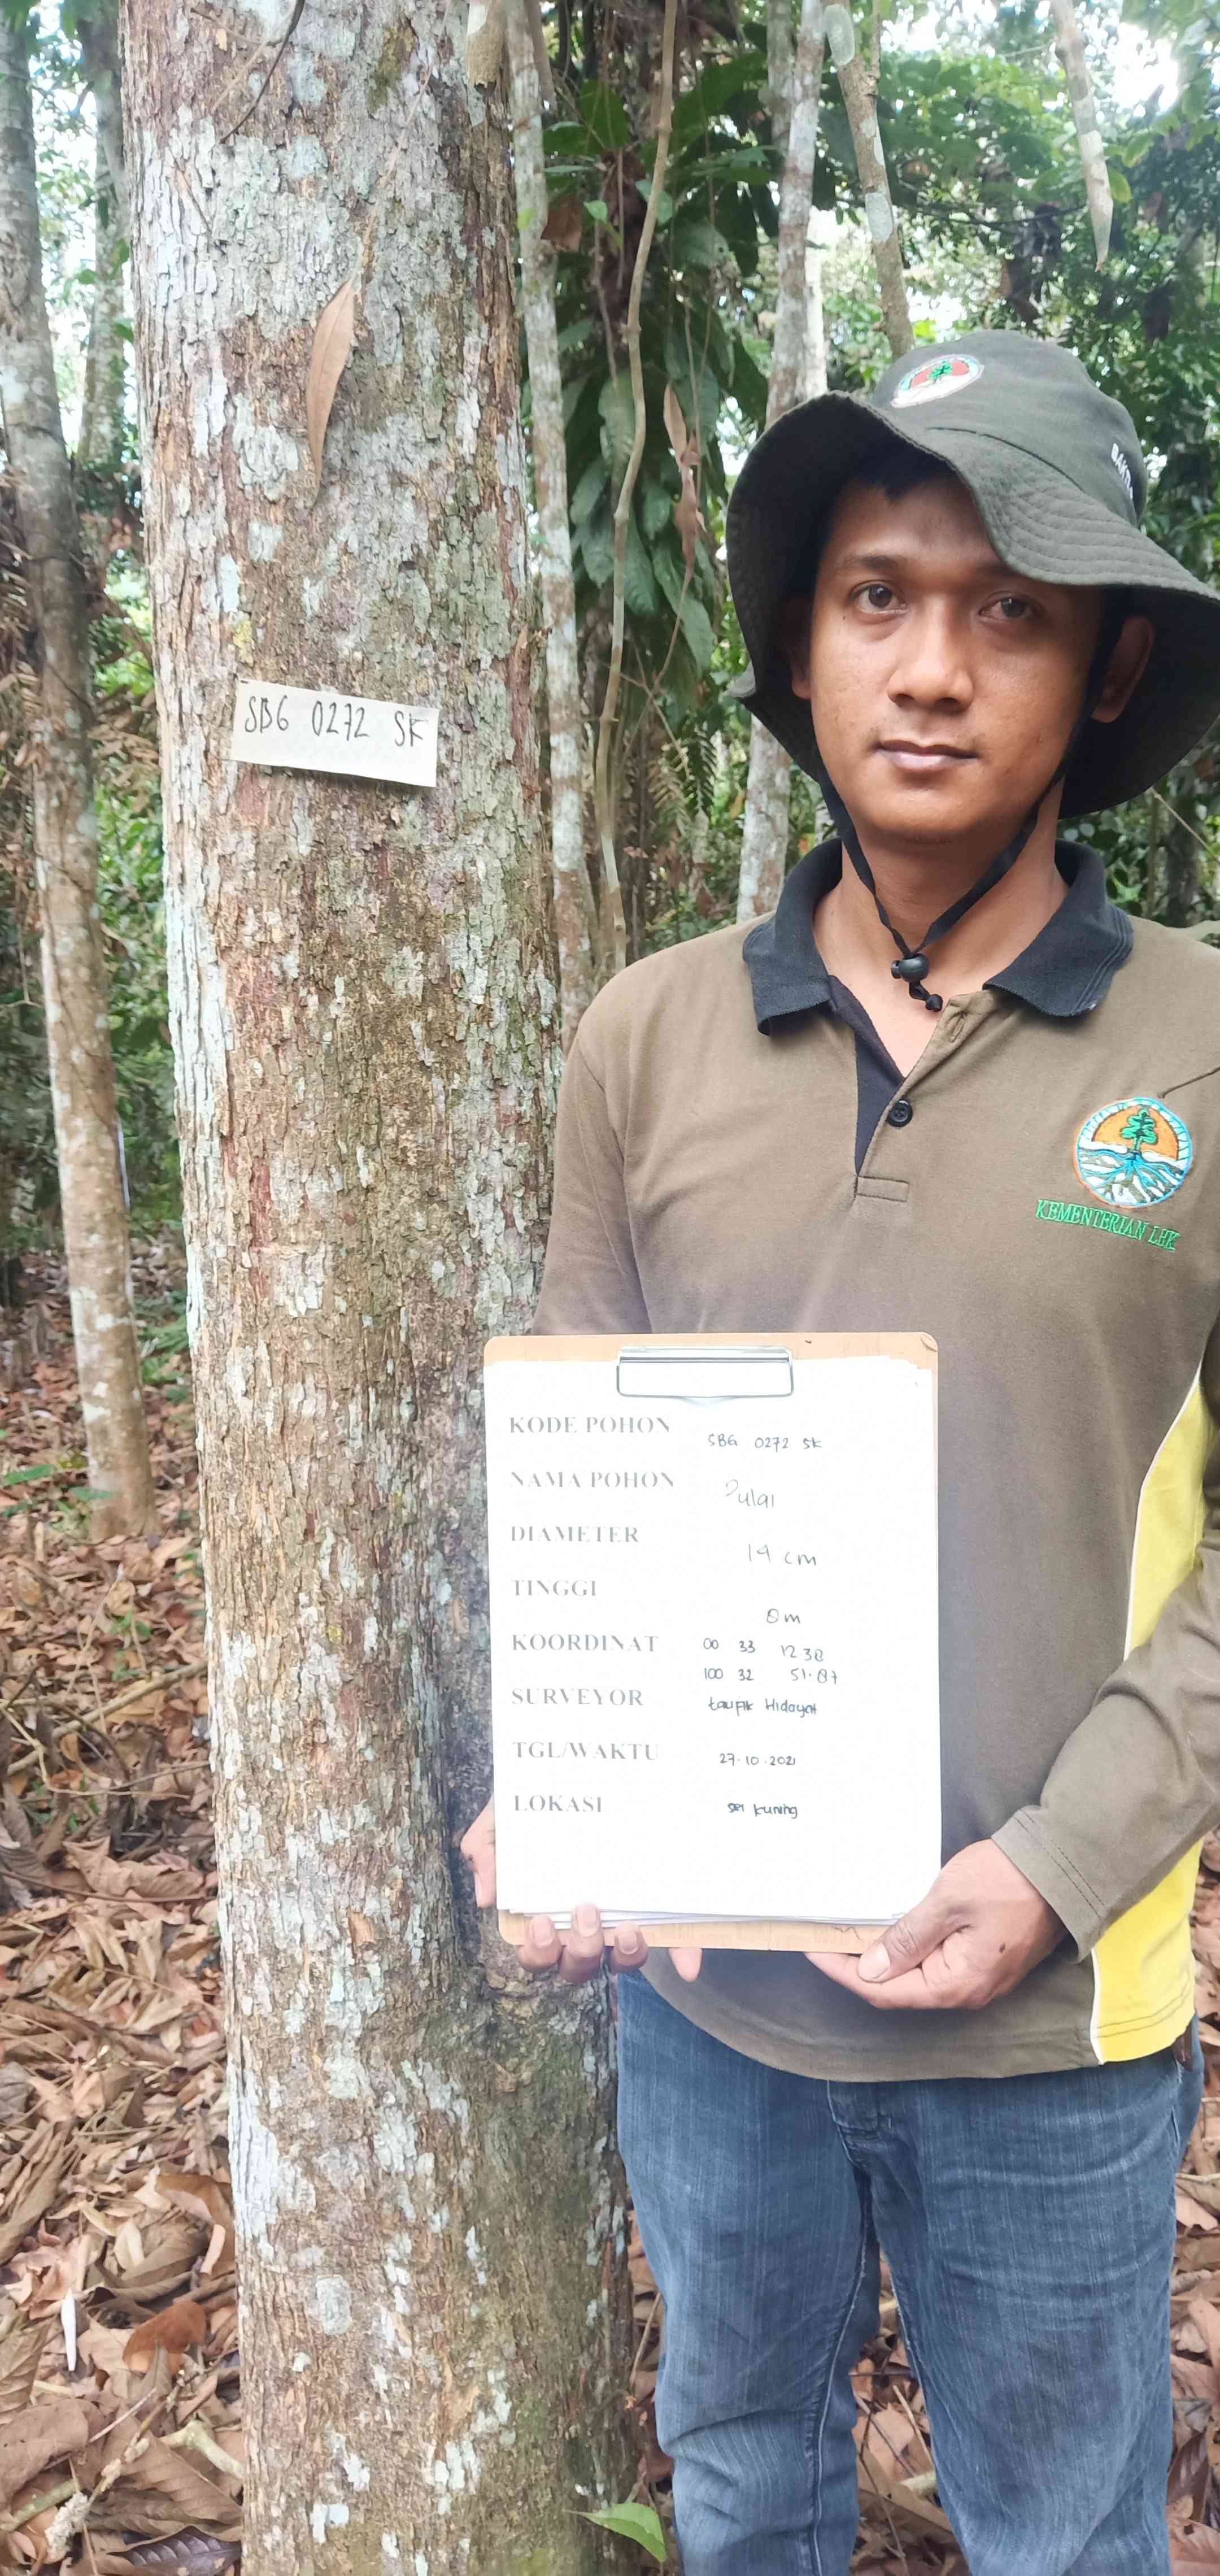 SBG 0272 SK
BAKTI
KEMENTERIAN LHK
KODE POHON SBG 0272 SK
NAMA POHON Pulai
DIAMETER 19 cm
TINGGI 8 m
KOORDINAT 00 33 12.38
100 32 51.87
SURVEYOR taufik Hidayat
TGL/WAKTU 27-10-2021
LOKASI sei kuning